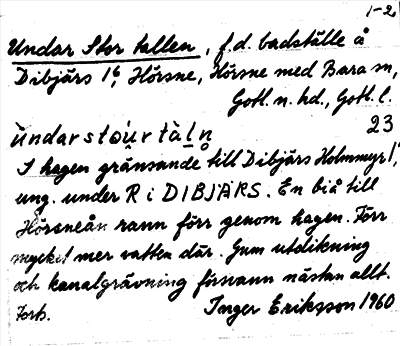 1-2
Undar Stor tallen, f.d. badställe å
Dibjärs 1⁶, Hörsne, Hörsne med Bara sn,
Gotl. n. hd., Gotl. l.
23
I hagen gränsande till Dibjärs Holmmyr 1,
ung. under R i DIBJÄRS. En biå till
Hörsneån rann förr genom hagen. Förr
mycket mer vatten där. Gnm utdikning
och kanalgrävning försvann nästan allt.
Torb. Inger Eriksson 1960